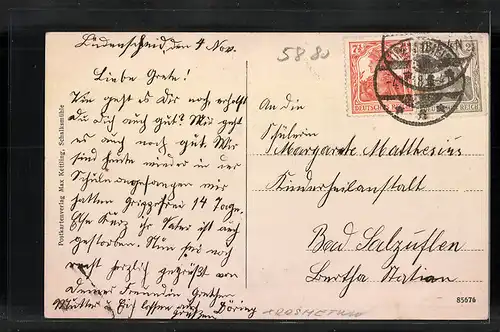 Lüdenscheid, den 4 Nov.
Liebe Grete!
Wie geht es Dir noch, erholst
Du Dich auch gut? Mir geht
es auch noch gut. Wir
sind heute wieder in der
Schule angefangen wir
hatten Grippefrei 14 Tage.
Kurz ihr Vater ist auch
gestorben. Nun sei noch
recht herzlich gegrüßt von
Deiner Freundin Gretchen
Mutter u lassen grüßen Döring
Postkartenverlag Max Kettling, Schalksmühle
58 80
7½
DEUTSCHES
REICH
An die
Schülerin
Margarete Matthesius
Kinderheilanstalt
Bad Salzuflen
Bertha Station
85676